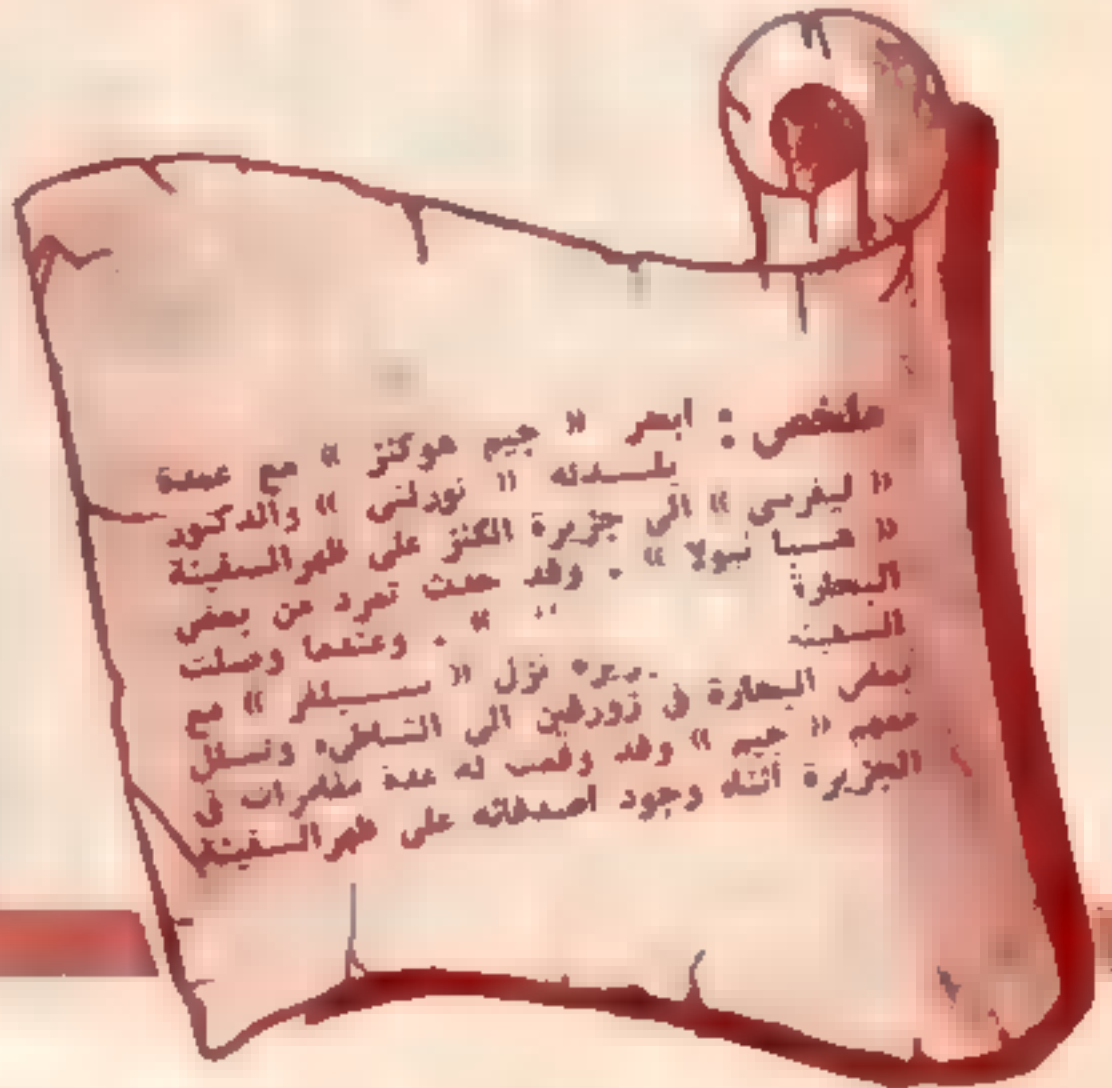 ملخص : ابحر « جيم هوكنز » مع عمدة
بلدته « نودلني » والدكتور
« ليفرسى » الى جزيرة الكنز على ظهر السفينة
« هسبا نيولا » . وقد حدث تمرد من بعض
البحارة « . وعندما وصلت
السفينة نزل « سيلفر » مع
بعض البحارة فى زورقين الى الشاطىء وتسلل
معهم « جيم » وقد وقعت له عدة مغامرات فى
الجزيرة أثناء وجود اصدقائه على ظهر السفينة